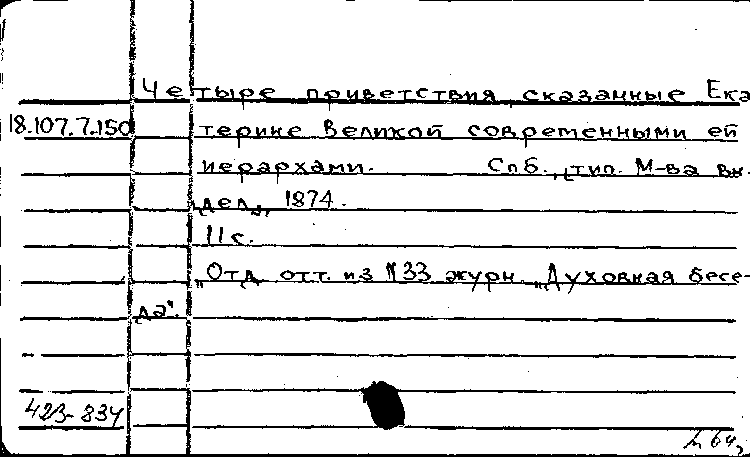 Четыре приветствия, сказанные Ека
18.107.7.150 терине Великой современными ей
иерархами. Спб., тип. М-ва вн.
дел, 1874.
11 с.
"Отд. отт. из №33 журн. "Духовная бесе-
да".
423-834